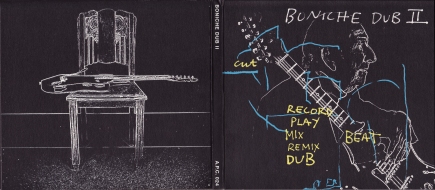 BONICHE DUB II
A.P.C. 024
BONICHE DUB II
cut
RECORD
PLAY
MIX
BEAT
REMIX
DUB